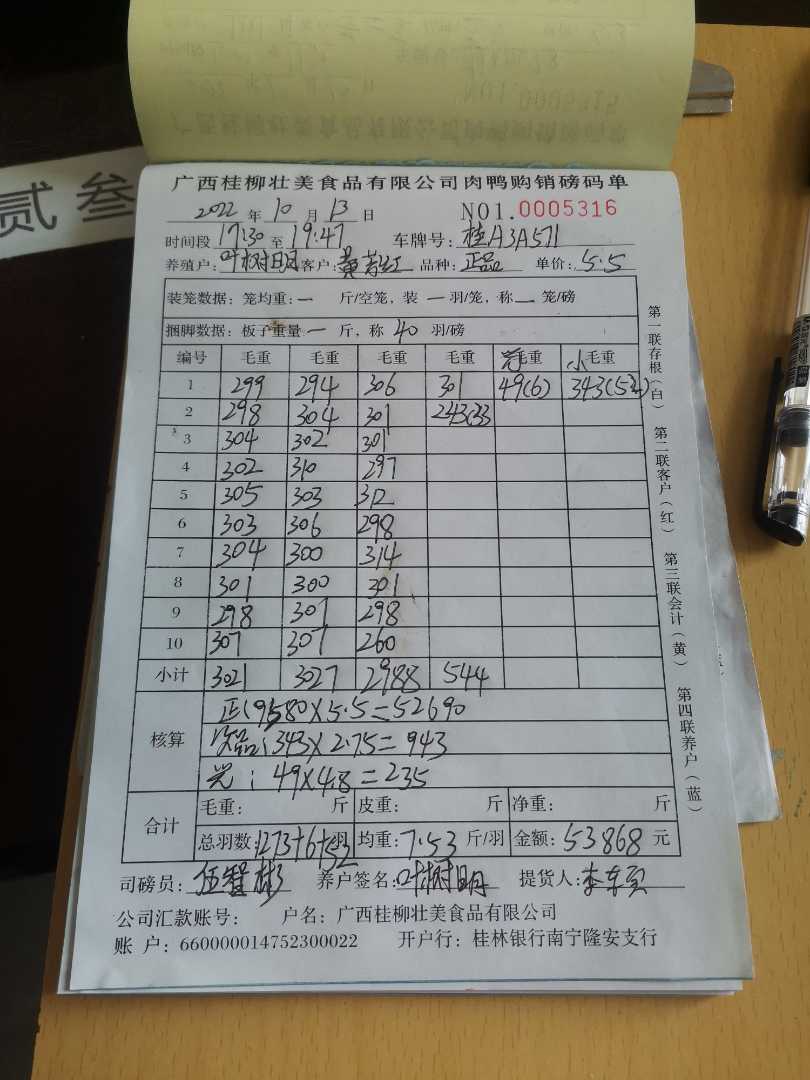 贰 叁
广西桂柳壮美食品有限公司肉鸭购销磅码单
2022 年 10 月 13 日 NO1.0005316
时间段 17:30 至 19:47 车牌号: 桂A3A571
养殖户: 叶树明 客户: 黄 品种: 正品 单价: 5.5
装笼数据: 笼均重: 一 斤/空笼, 装 一 羽/笼, 称 一 笼/磅
捆脚数据: 板子重量 一 斤, 称 40 羽/磅
编号 毛重 毛重 毛重 毛重 毛重 小毛重
1 299 294 306 301 49(6) 343(52)
2 298 304 301 243(33
3 304 302 301
4 302 310 297
5 305 303 312
6 303 306 298
7 304 300 314
8 301 300 301
9 298 301 298
10 307 307 260
小计 3021 3027 2988 544
核算
正(9580×5.5=52690
次品:343×2.75=943
: 49×4.8=235
合计
毛重: 斤 皮重: 斤 净重: 斤
总羽数: 1273+6+52 羽 均重: 7.53 斤/羽 金额: 53868 元
司磅员: 伍智彬 养户签名: 叶树明 提货人: 李
公司汇款账号: 户名: 广西桂柳壮美食品有限公司
账 户: 660000014752300022 开户行: 桂林银行南宁隆安支行
第一联存根(白)
第二联客户(红)
第三联会计(黄)
第四联养户(蓝)